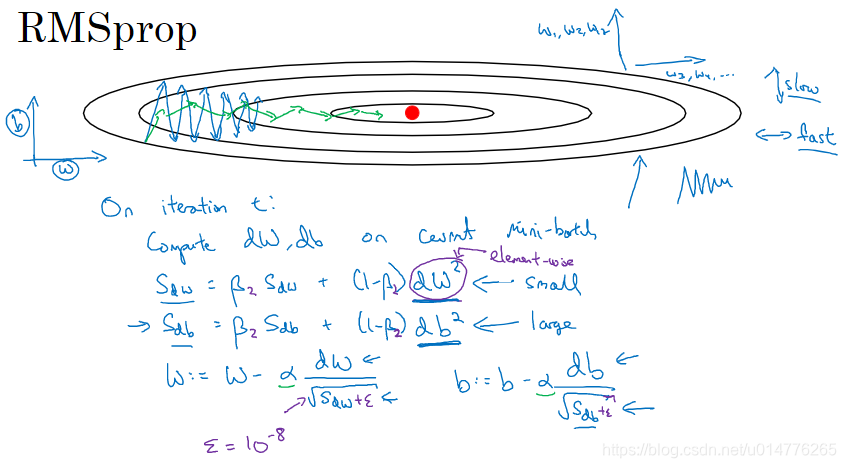 RMSprop
w₁, w₂, w₂
w₃, w₄, ...
↕ slow
↔ fast
b
w
On iteration t:
Compute dW, db on current mini-batch
element-wise
S_dw = β₂ S_dw + (1-β₂) dW² ← small
→ S_db = β₂ S_db + (1-β₂) db² ← large
W := W - α dW / √(S_dw + ε) ←
b := b - α db / √(S_db + ε) ←
ε = 10⁻⁸
https://blog.csdn.net/u014776265